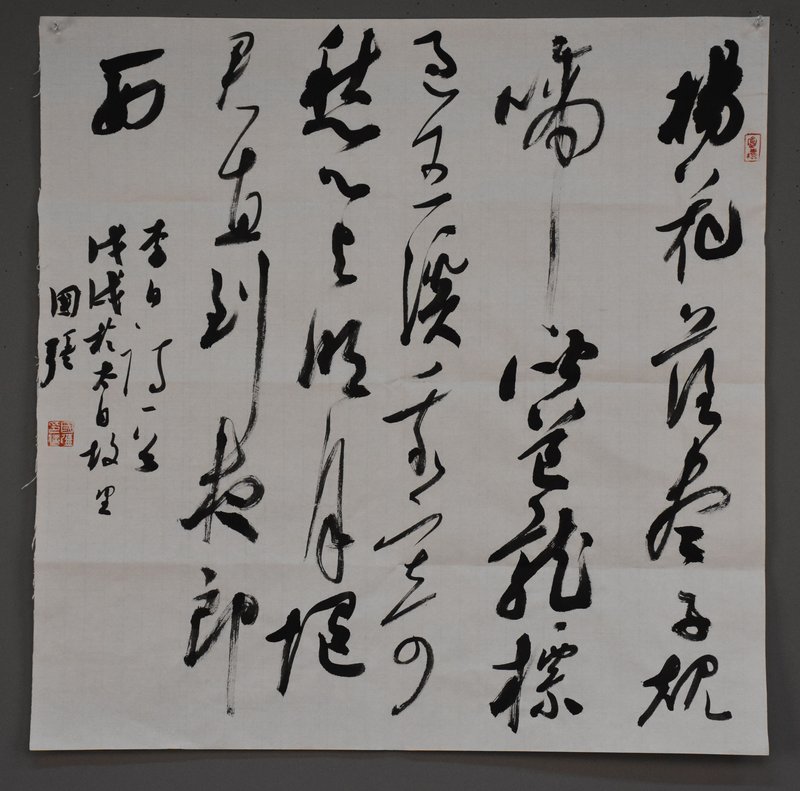 楊花落盡子規
啼聞道龍標
過五溪我寄
愁心与明月隨
君直到夜郎
西
李白詩一首
戊戌於太白故里
國強